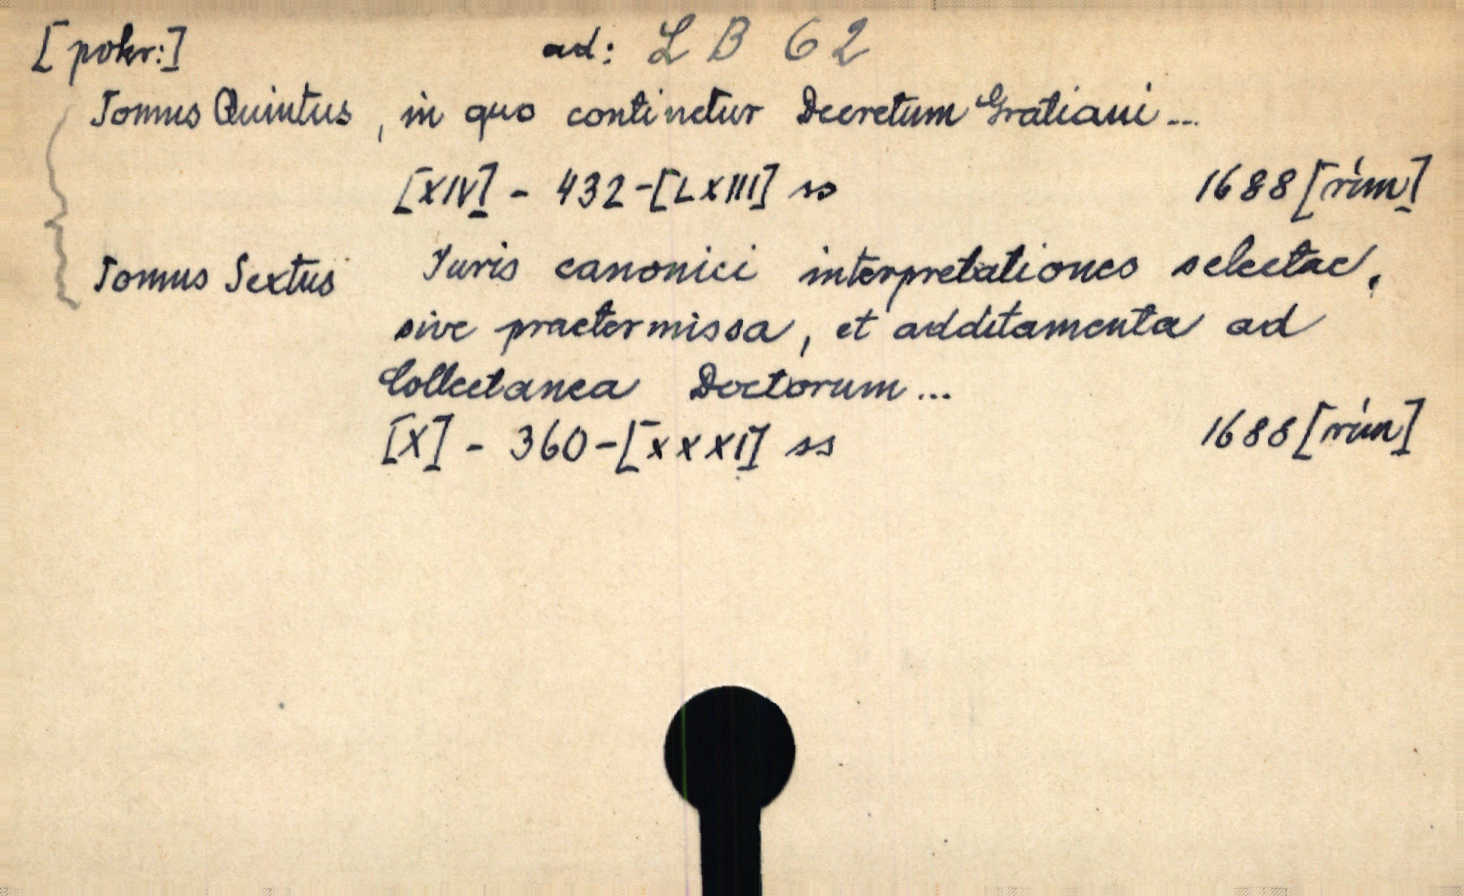 [pokr:] ad: LB 62
Tomus Quintus, in quo continetur Decretum Gratiani...
[XIV] - 432-[LXIII] ss 1688 [řím]
Tomus Sextus Iuris canonici interpretationes selectae,
sive praetermissa, et additamenta ad
Collectanea Doctorum...
[X] - 360-[XXXI] ss 1688 [řím]